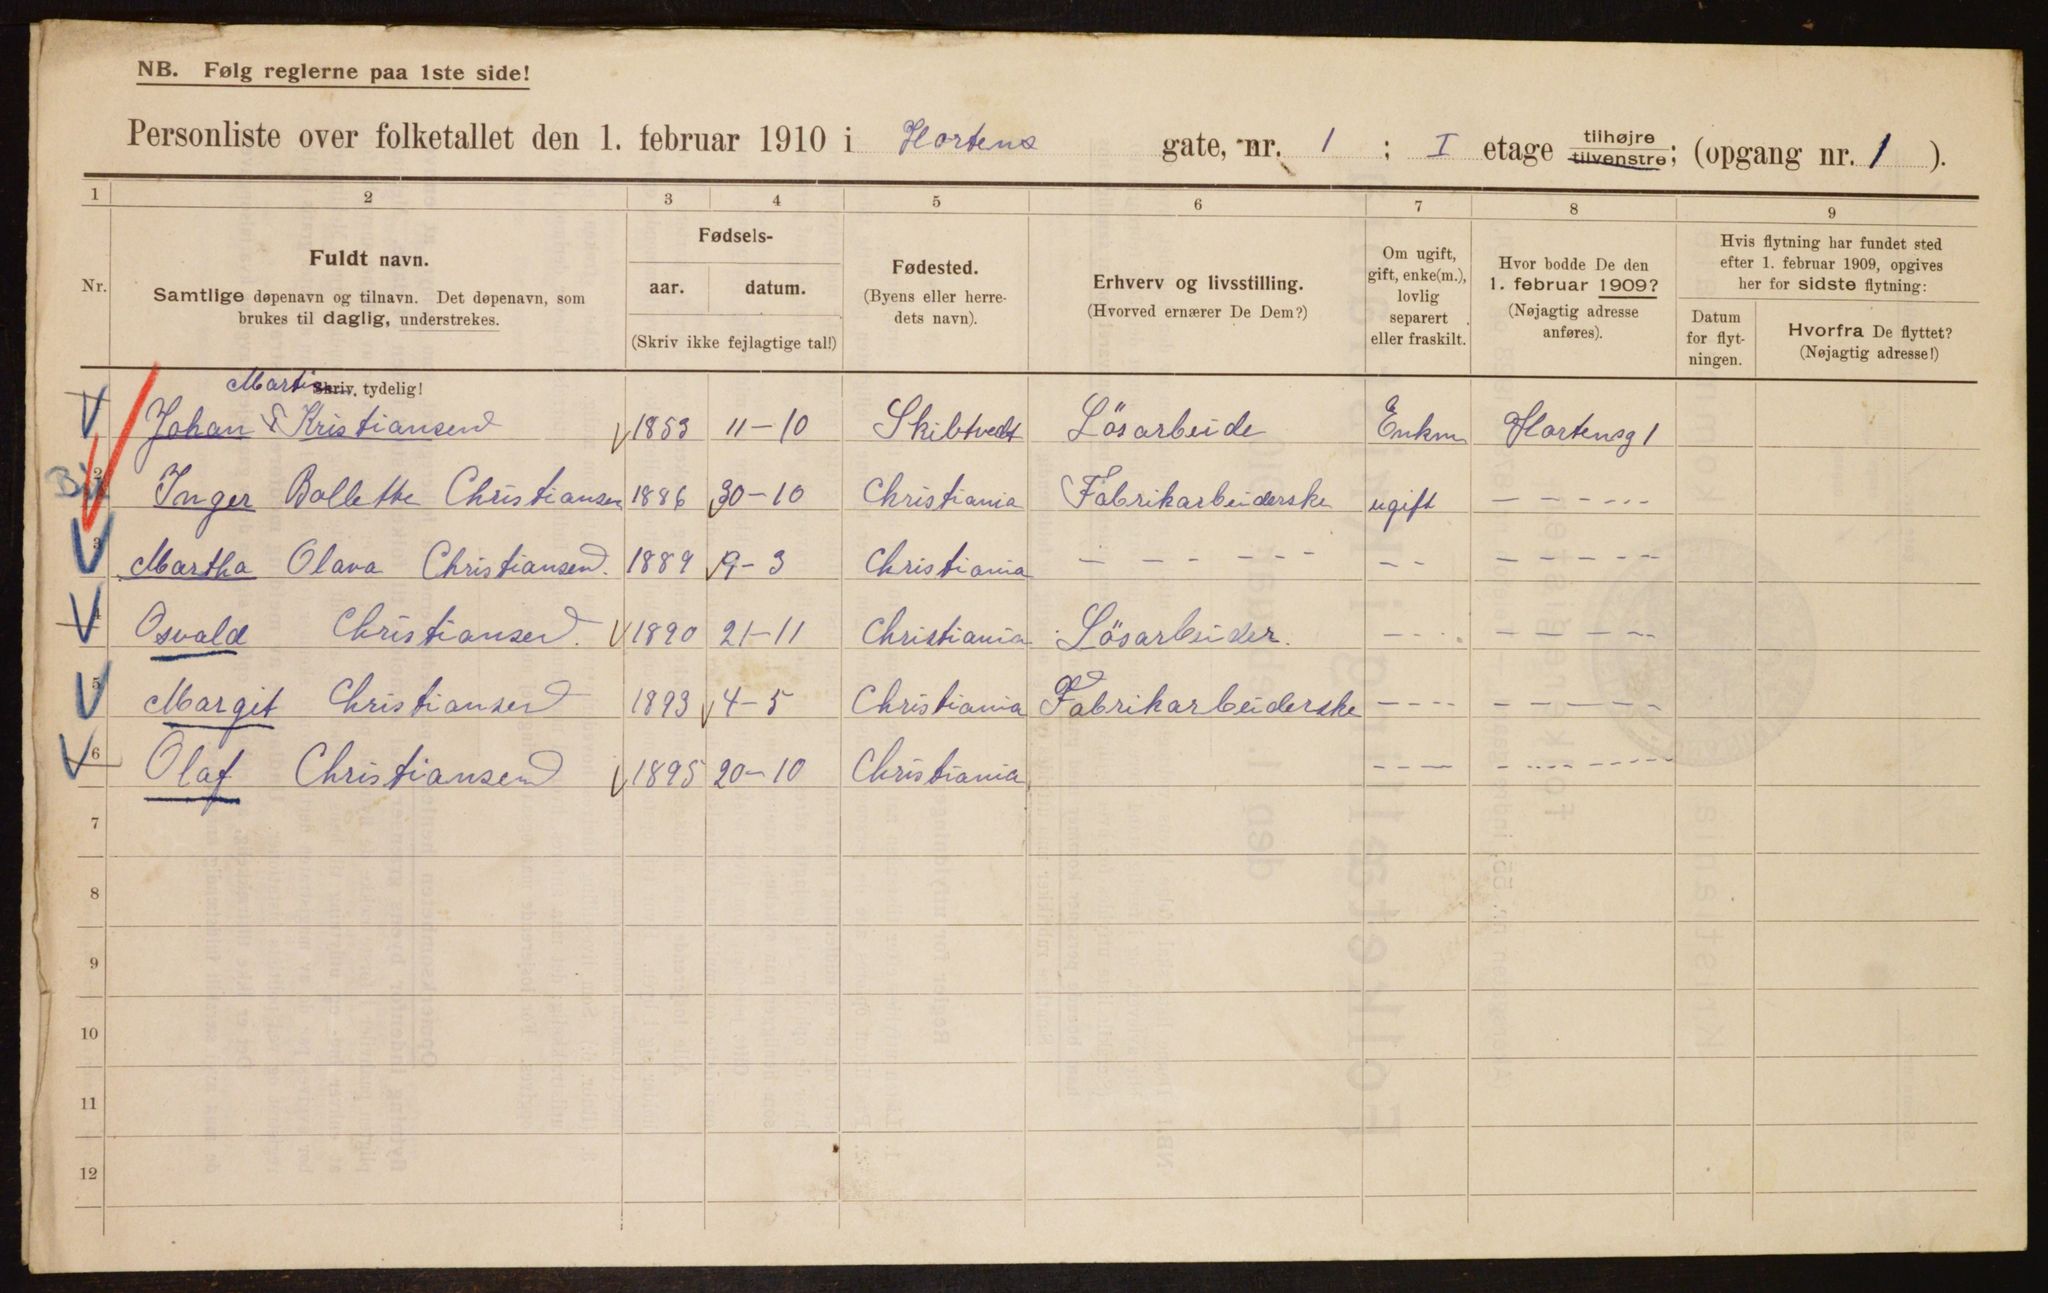 NB. Følg reglerne paa 1ste side!
Personliste over folketallet den 1. februar 1910 i Hortens gate, nr. 1 ; I etage tilhøjre tilvenstre; (opgang nr. 1 ).
1 2 3 4 5 6 7 8 9
Nr.
Fuldt navn.
Samtlige døpenavn og tilnavn. Det døpenavn, som
brukes til daglig, understrekes.
Skriv tydelig!
Fødsels-
aar. datum.
(Skriv ikke fejlagtige tal!)
Fødested.
(Byens eller herre-
dets navn).
Erhverv og livsstilling.
(Hvorved ernærer De Dem?)
Om ugift,
gift, enke(m.),
lovlig
separert
eller fraskilt.
Hvor bodde De den
1. februar 1909?
(Nøjagtig adresse
anføres).
Hvis flytning har fundet sted
efter 1. februar 1909, opgives
her for sidste flytning:
Datum
for flyt-
ningen.
Hvorfra De flyttet?
(Nøjagtig adresse!)
Martin
Johan Kristiansen 1853 11-10 Skibtvedt Lösarbeide Enkm Hortensg 1
2 Inger Bollette Christiansen 1886 30-10 Christiania Fabrikarbeiderske ugift - - - - - -
3 Martha Olava Christiansen. 1889 9-3 Christiania - - - - - - - - - - - - -
4 Osvald Christiansen. 1890 21-11 Christiania Lösarbeider. - - - - - - - - -
5 Margit Christiansen 1893 4-5 Christiania Fabrikarbeiderske - - - - - - - - - -
6 Olaf Christiansen 1895 20-10 Christiania - - - - - - - - - -
7
8
9
10
11
12